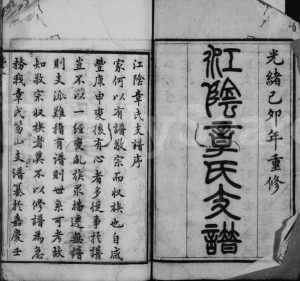 光緒己卯年重修
江陰章氏支譜
江陰章氏支譜序
家何以有譜敬宗而收族也自咸
豐庚申變後有心者多從事於譜
豈不以一經變亂族眾播遷無譜
則支派難稽有譜則世系可考故
知敬宗收族者莫不以修譜為急
務我章氏 山支譜纂於嘉慶壬